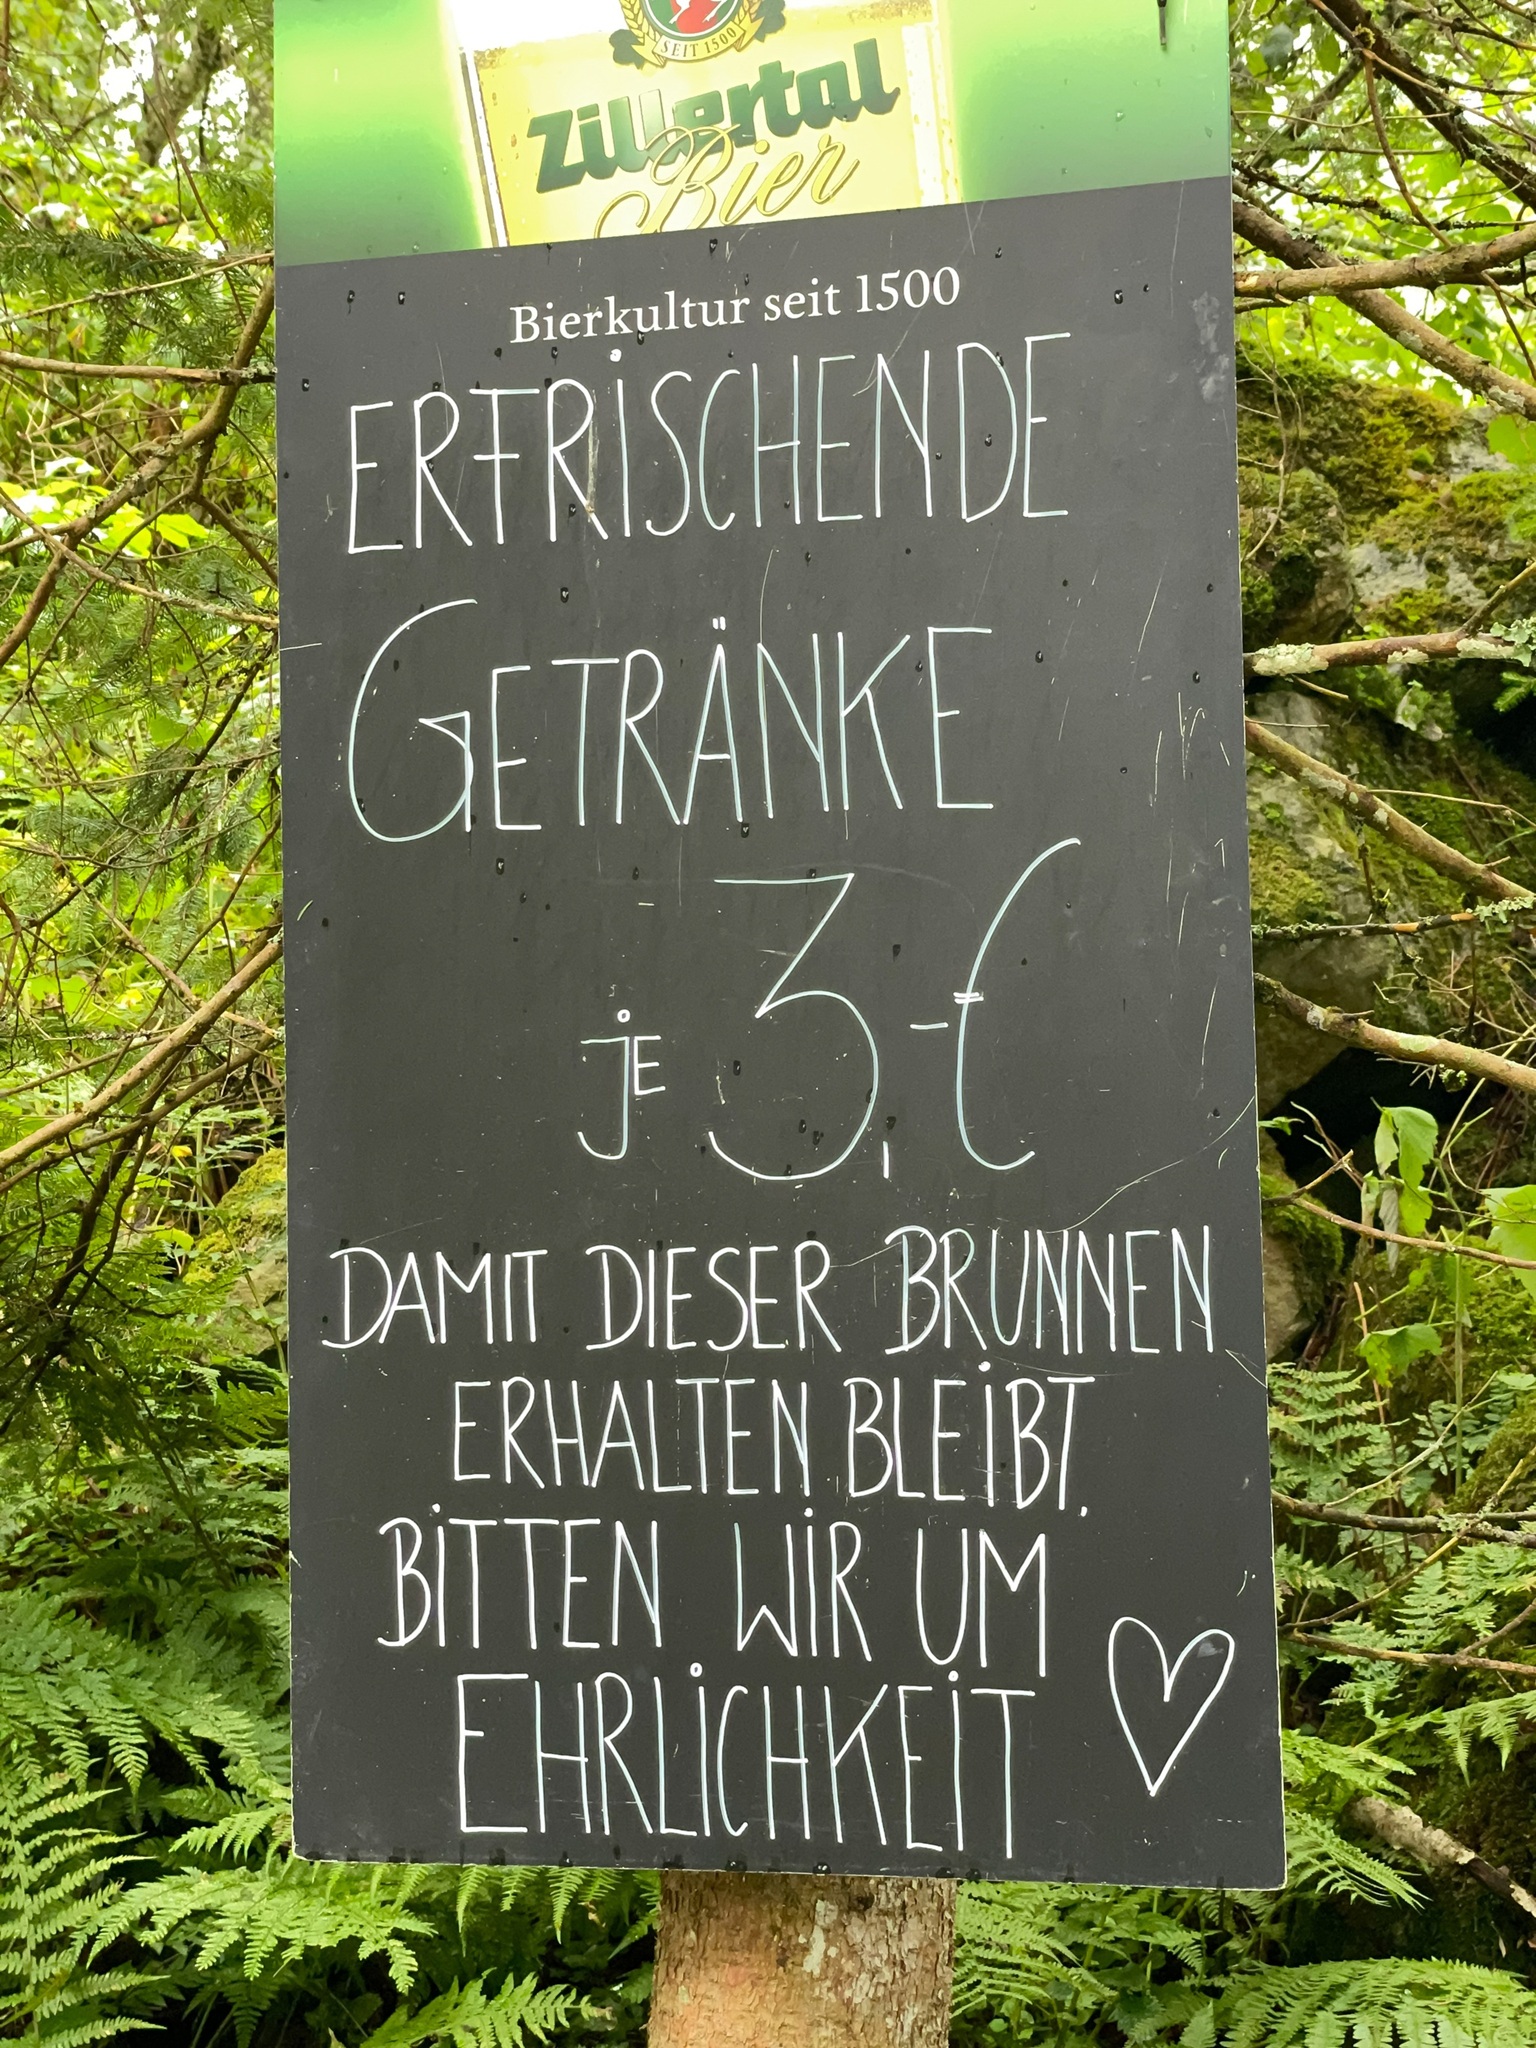 SEIT 1500
Zillertal
Bier
Bierkultur seit 1500
ERFRiSCHENDE
GETRÄNKE
jE 3,-€
DAMIT DIESER BRUNNEN
ERHALTEN BLEiBT.
BiTTEN WiR UM
EHRLiCHKEiT